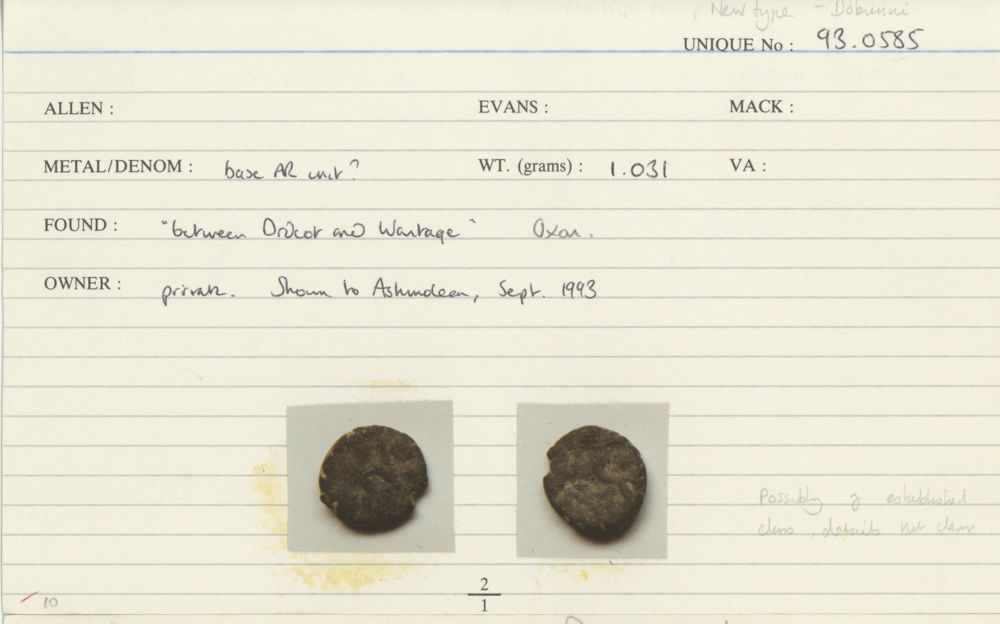 New type - Dobunni
UNIQUE No : 93.0585
ALLEN : EVANS : MACK :
METAL/DENOM : base AR unit? WT. (grams) : 1.031 VA :
FOUND : "between Didcot and Wantage" Oxon.
OWNER : private. Shown to Ashmolean, Sept. 1993
Possibly of established
class, details not clear
2
1
10